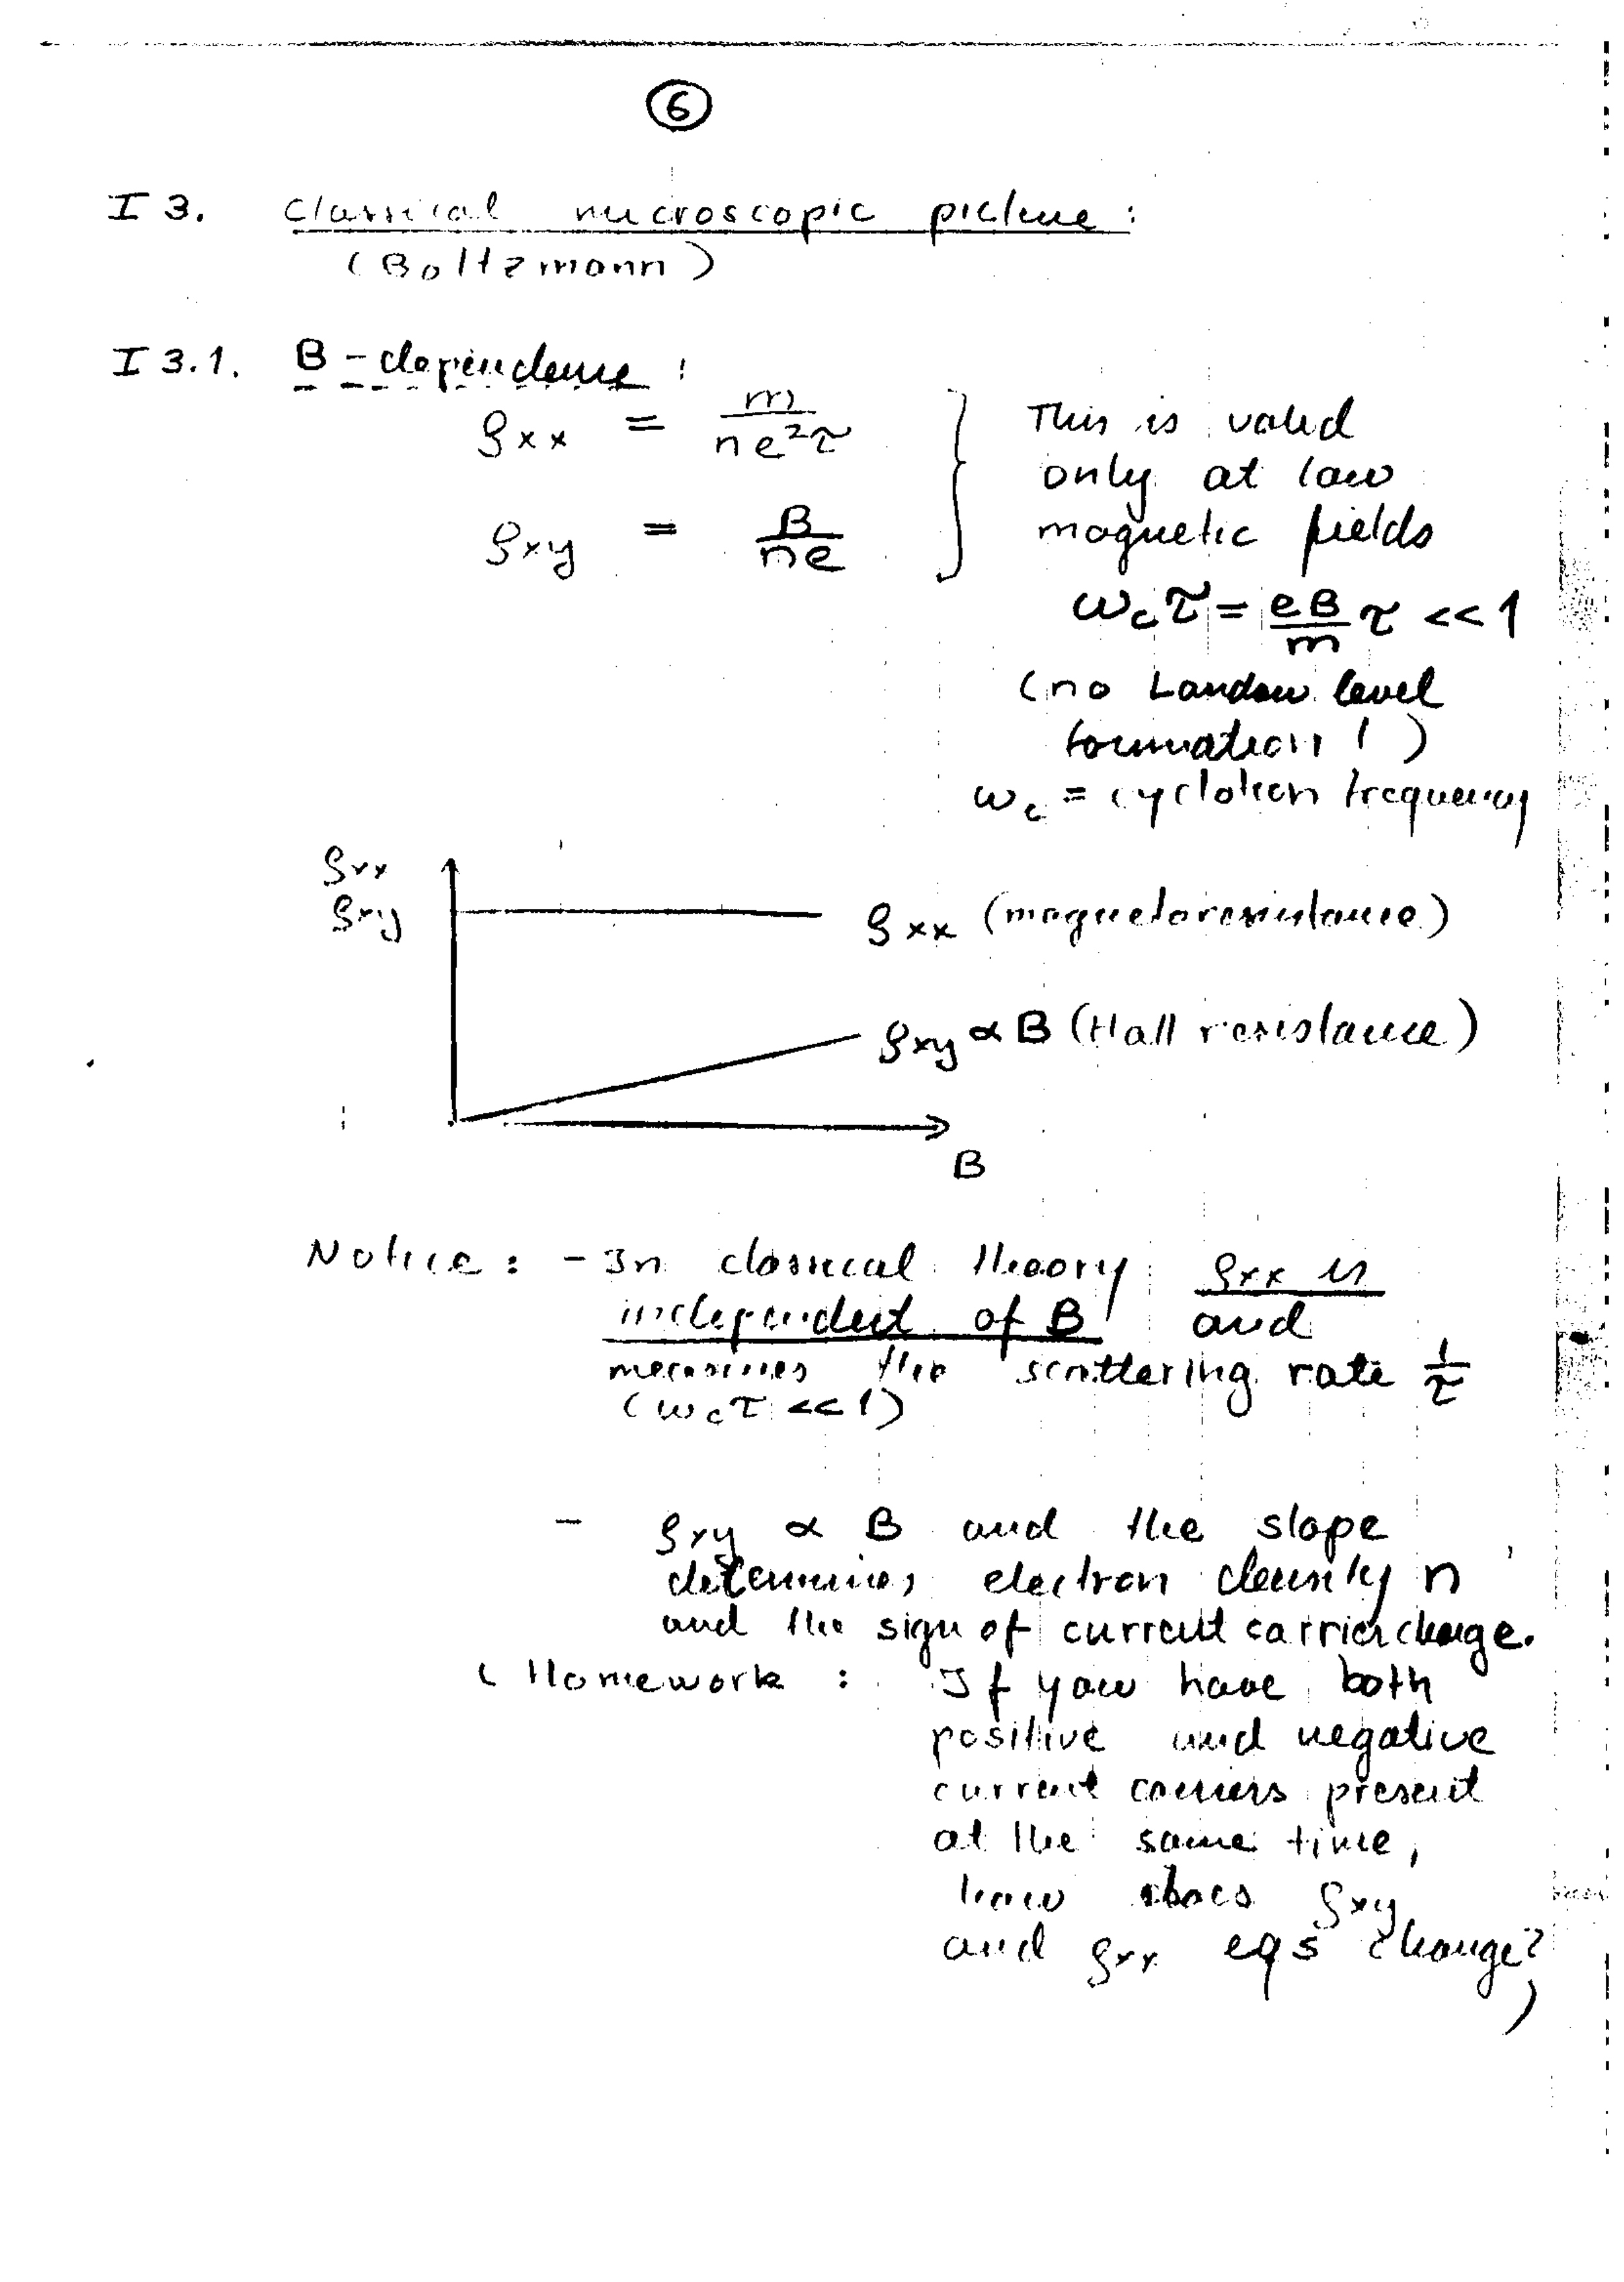 ⑥
I 3. Classical microscopic picture :
(Boltzmann)
I 3.1. B - dependence :
ρxx = m / ne²τ
ρxy = B / ne
This is valid
only at low
magnetic fields
ωcτ = eB/m τ << 1
(no Landau level
formation ! )
ωc = cyclotron frequency
ρxx
ρxy
ρxx (magnetoresistance)
ρxy ∝ B (Hall resistance)
B
Notice : - In classical theory ρxx is
independent of B and
measures the scattering rate 1/τ
(ωcτ << 1)
- ρxy ∝ B and the slope
determines electron density n
and the sign of current carrier charge.
( Homework : If you have both
positive and negative
current carriers present
at the same time,
how does ρxy
and ρxx eqs change?
)